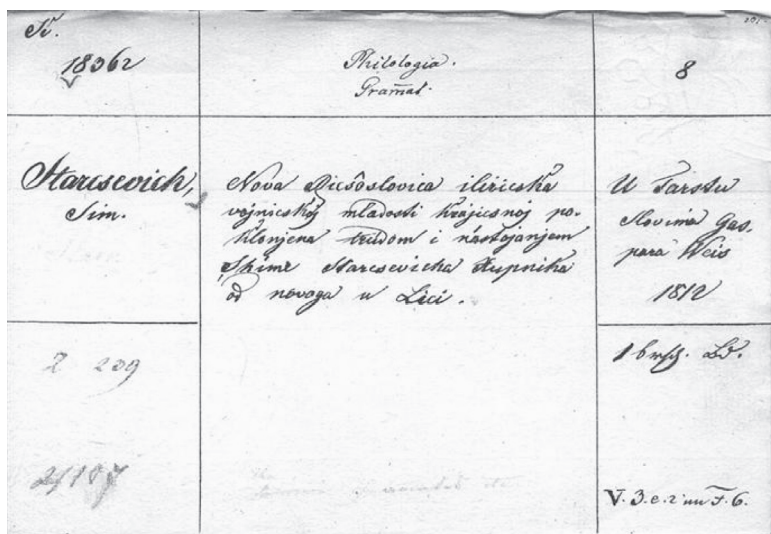 18362
Philologia.
Gramat.
8
Starcsevich,
Sim.
Nova Ricsoslovica iliricska
vojnicskoj mladosti krajicsnoj po-
klonjena trudom i nastojanjem
Shime Starcsevicha Xupnika
od novoga u Lici.
U Tarstu
Slovima Gas-
para Weis
1812
2 239
1 brsch. Bd.
2/107